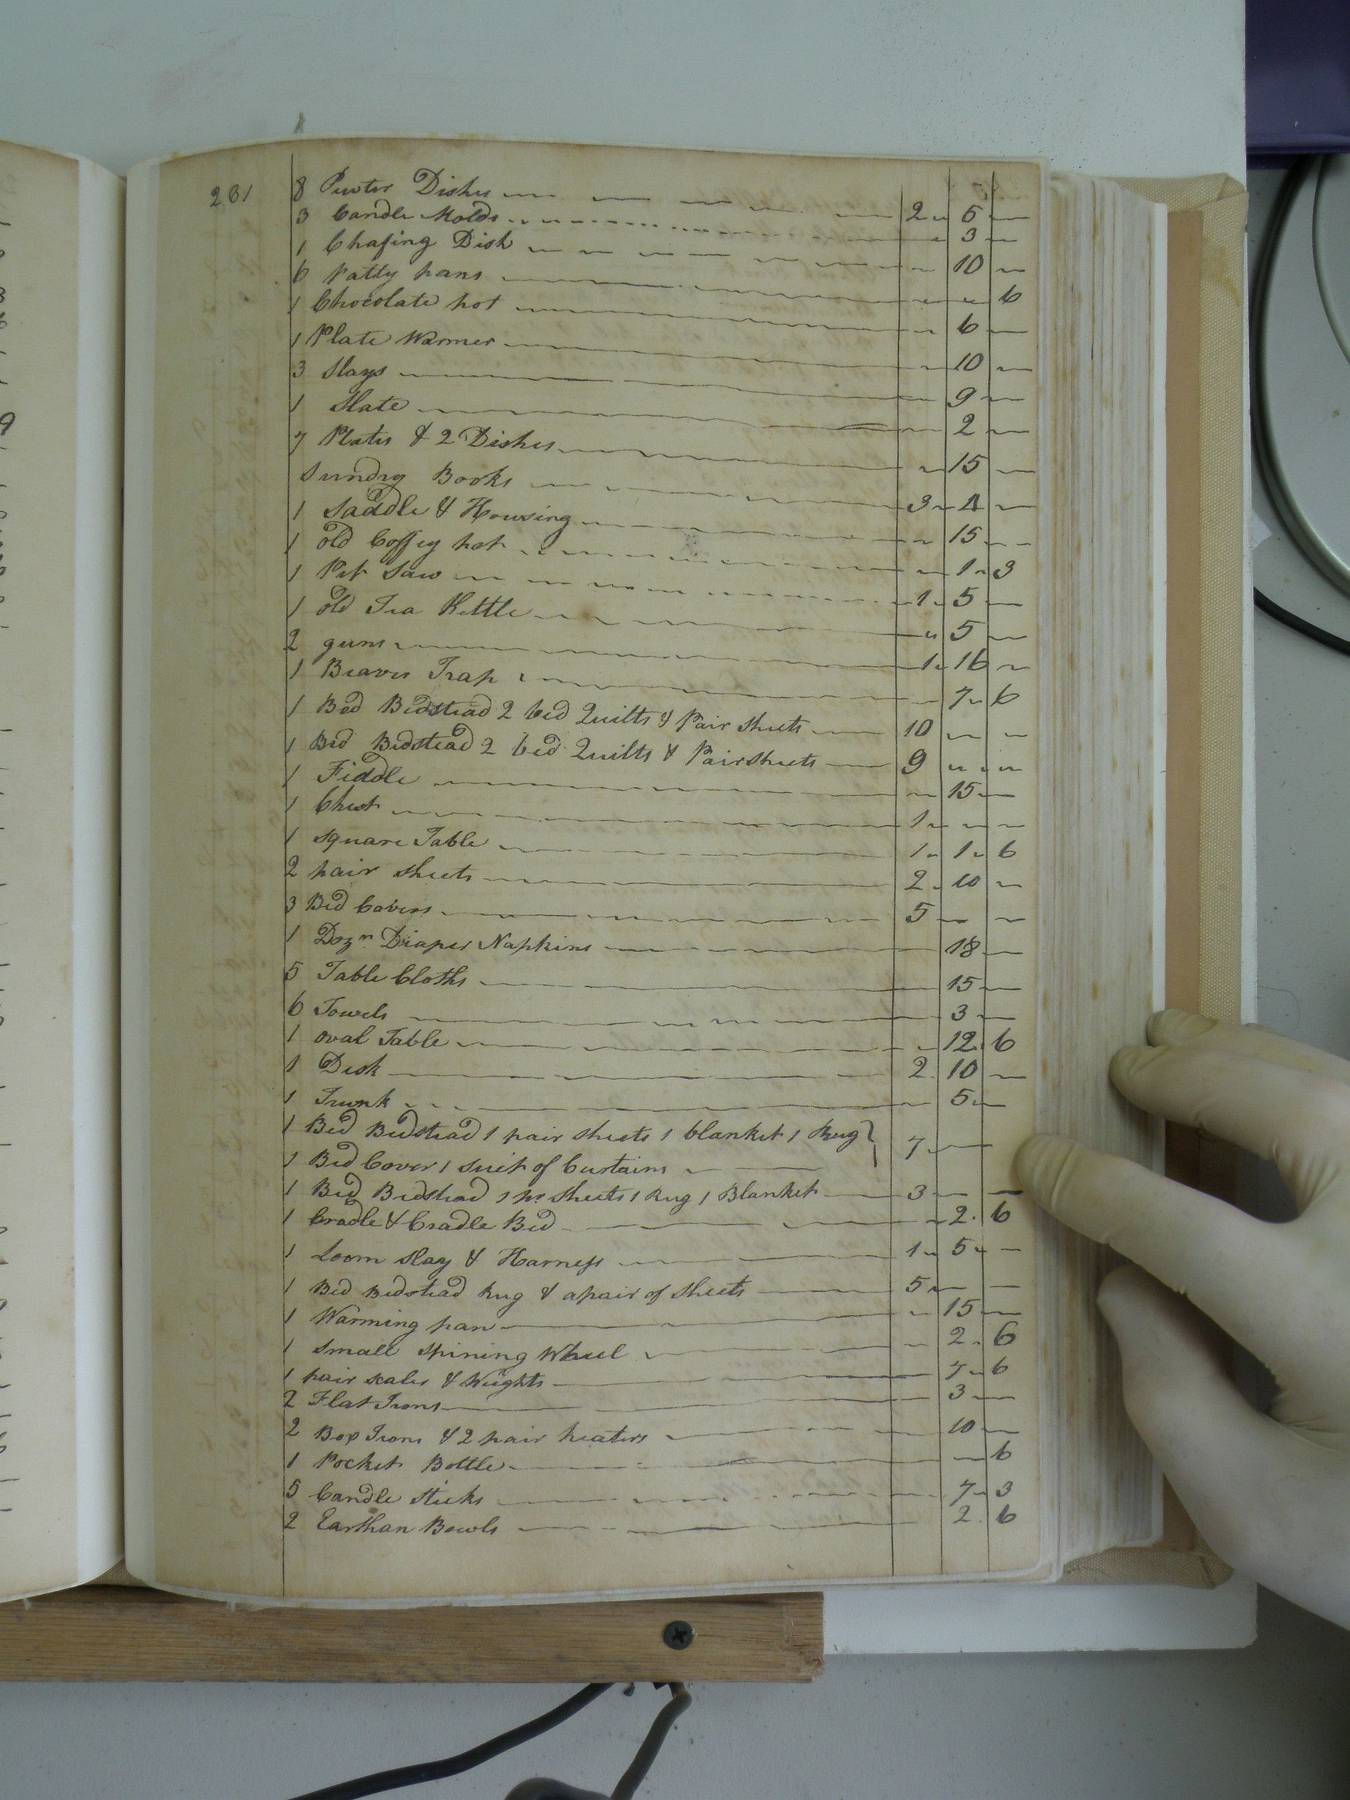 231
8 Pewter Dishes 2 " 5 —
3 Candle Molds " 3 —
1 Chafing Dish — 10 —
6 Patty pans — " 6
1 Chocolate pot " 6 —
1 Plate Warmer " 10 —
3 Slays 9 —
1 Slate — 2 —
7 Plates & 2 Dishes " 15 —
Sundry Books 3 " 4 —
1 Saddle & Housing " 15 —
1 old Coffey pot — 1 " 3
1 Pit Saw 1 " 5 —
1 old Tea Kettle " 5 —
2 guns 1 " 16 —
1 Beaver Trap — 7 " 6
1 Bed Bedstead 2 bed Quilts & Pair Sheets 10 — —
1 Bed Bedstead 2 bed Quilts & Pair Sheets 9 " " "
1 Fiddle — 15 —
1 Chest 1 " — —
1 square Table 1 " 1 " 6
2 pair sheets 2 " 10 —
3 Bed Covers 5 — —
1 Dozn Diaper Napkins 18 —
5 Table Cloths 15 —
6 Towels 3 —
1 oval Table 12 " 6
1 Desk 2 " 10 —
1 Trunk — 5 —
1 Bed Bedstead 1 pair sheets 1 blanket 1 Rug }
1 Bed Cover 1 suit of Curtains 7 " —
1 Bed Bedstead 1 pr sheets 1 Rug 1 Blanket 3 — —
1 Cradle & Cradle Bed " 2 " 6
1 Loom Slay & Harness 1 " 5 " —
1 Bed Bedstead Rug & a pair of Sheets 5 " — —
1 Warming pan " 15 —
1 small spining Wheel — 2 " 6
1 pair scales & Weights — 7 " 6
2 Flat Irons 3 —
2 Box Irons & 2 pair heaters 10 —
1 Pocket Bottle — 6
5 Candle sticks 7 " 3
2 Earthan Bowls 2 " 6